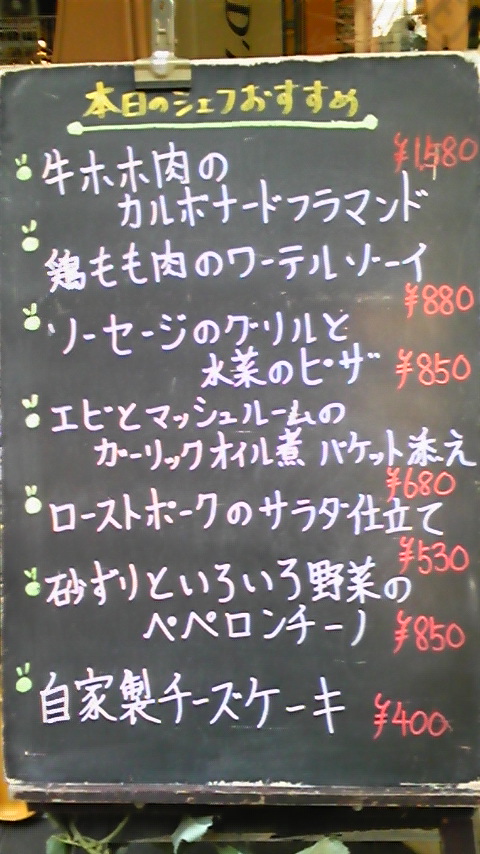 本日のシェフおすすめ
牛ホホ肉の ¥1,580
カルボナードフラマンド
鶏もも肉のワーテルゾーイ
¥880
ソーセージのグリルと
水菜のピザ ¥850
エビとマッシュルームの
ガーリックオイル煮 バケット添え
¥680
ローストポークのサラダ仕立て
¥530
砂ずりといろいろ野菜の
ペペロンチーノ ¥850
自家製チーズケーキ ¥400